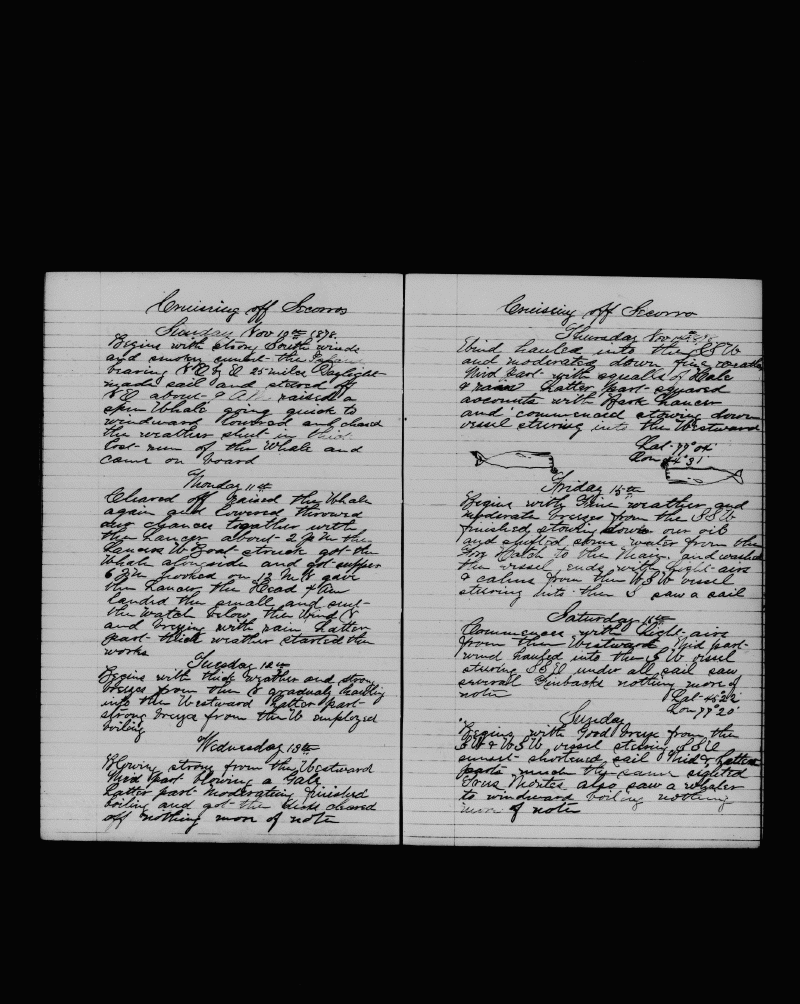 Cruising off Socorro
Sunday Nov 10th 1878
Begins with strong South winds
and smoky under the
bearing N E by E 25 miles Daylight
made sail and steered off
about 9 A.M. raised a
spm Whale going quick to
windward lowered and chased
the weather shut in thick
lost run of the Whale and
came on board
Monday 11th
Cleared off raised the Whale
again and lowered throwed
our chances together with
the Lancer about 2 P M the
Lancers W Boat struck got the
Whale alongside and got supper
6 P M hooked on 12 M N gave
the Lancer the Head &
landed the small and sent
the watch below the Wind
and breezing with rain Latter
part thick weather started the
works
Tuesday 12th
Begins with thick weather and strong
breeze from the gradualy hauling
into the Westward Latter part
strong breeze from the W employed
boiling
Wednesday 13th
Blowing strong from the Westward
Mid part blowing a Gale
Latter part Moderating finished
boiling and got the decks cleared
off nothing more of note
Cruising off Socorro
Thursday Nov 14th
Wind hauled into the S S W
and moderated down fine weather
Mid part with squalls of Hale
& rain Latter part squared
accounts with Bark Lancer
and commenced stowing down
vessel steering into the Westward
Friday 15th
Begins with Fine weather and
moderate breeses from the S S W
finished stowing down our oil
and shifted some water from the
Fore Hatch to the Main, and washed
the vessel, ends with Light airs
& calms from the W S W vessel
steering into the S saw a sail
Saturday 16th
Commences with Light airs
from the Westward Mid part
wind hauled into the S W vessel
steering under all sail saw
several Finbacks nothing more of
note
Lat 45°22'
Lon 77°20'
Sunday
Begins with Good breeze from the
S W & W S W, vessel steering
sunset shortened sail Mid & Latter
parts much the same sighted
also saw a whaler
to windward boiling nothing
more of note